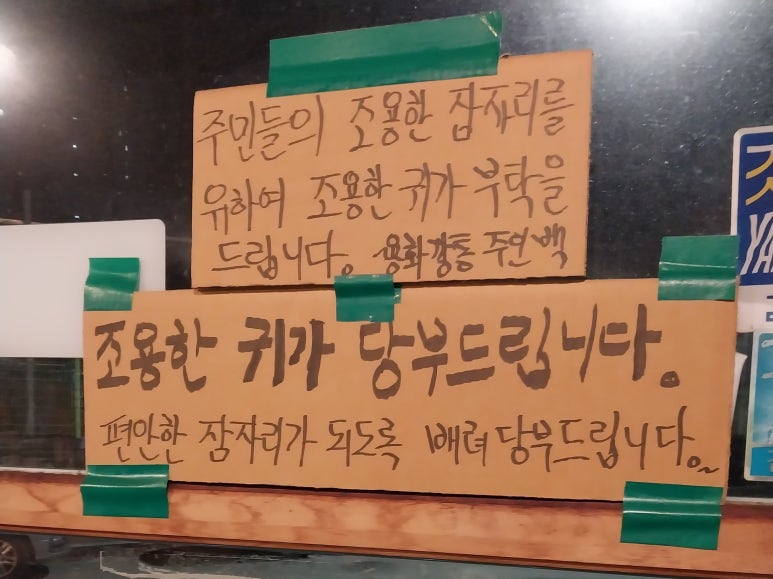 주민들의 조용한 잠자리를
유하여 조용한 귀가 부탁을
드립니다. 주민백
조용한 귀가 당부드립니다.
편안한 잠자리가 되도록 배려 당부드립니다.~
YA